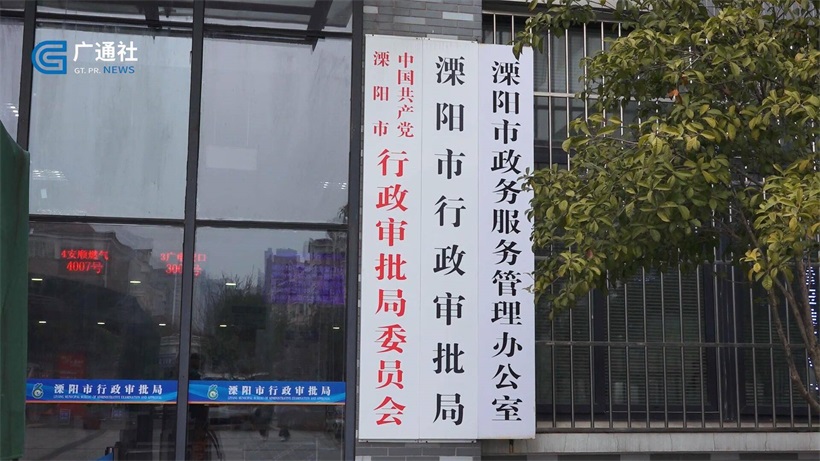 广通社
GT. PR. NEWS
中国共产党
溧阳市
行政审批局委员会
溧阳市行政审批局
溧阳市政务服务管理办公室
4安顺燃气
4007号
溧阳市行政审批局
溧阳市行政审批局